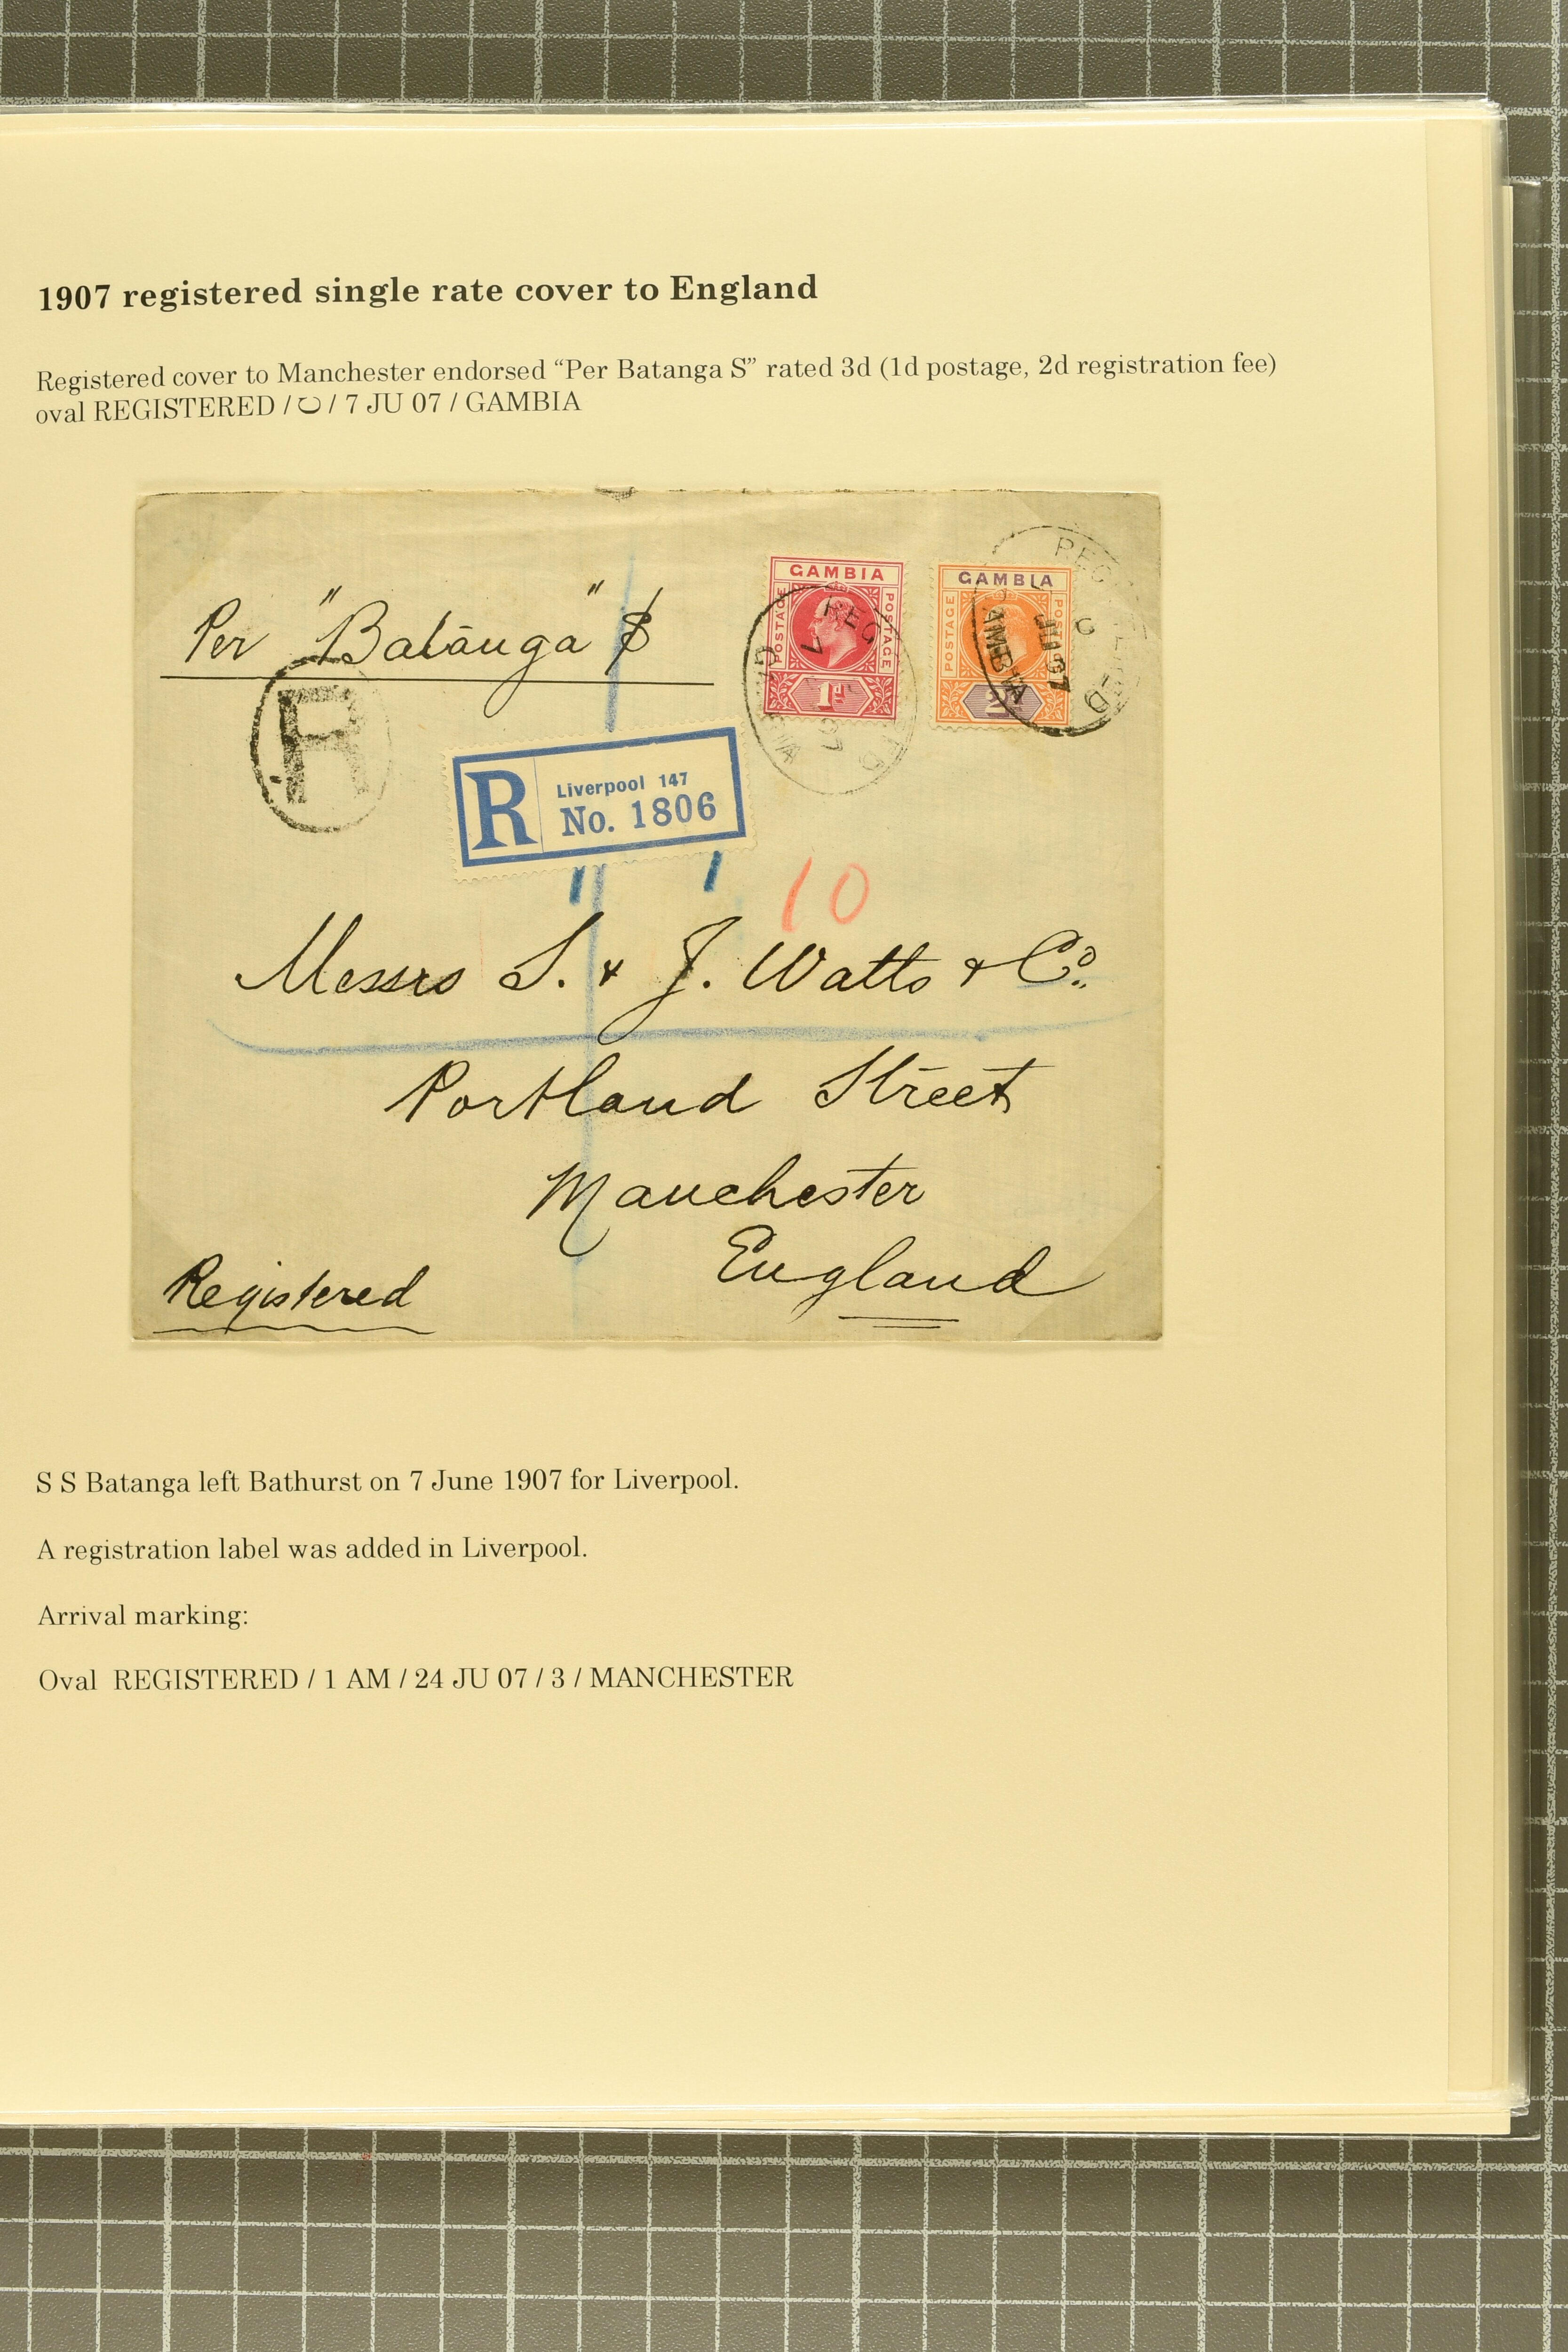 1907 registered single rate cover to England
Registered cover to Manchester endorsed “Per Batanga S” rated 3d (1d postage, 2d registration fee)
oval REGISTERED / C / 7 JU 07 / GAMBIA
Per "Batanga" S
GAMBIA
POSTAGE
POSTAGE
1d
GAMBIA
POSTAGE
POSTAGE
2
REG
7
07
C
JU 07
GAMBIA
R
R
Liverpool 147
No. 1806
10
Messrs S. & J. Watts & Co.
Portland Street
Manchester
England
Registered
S S Batanga left Bathurst on 7 June 1907 for Liverpool.
A registration label was added in Liverpool.
Arrival marking:
Oval REGISTERED / 1 AM / 24 JU 07 / 3 / MANCHESTER